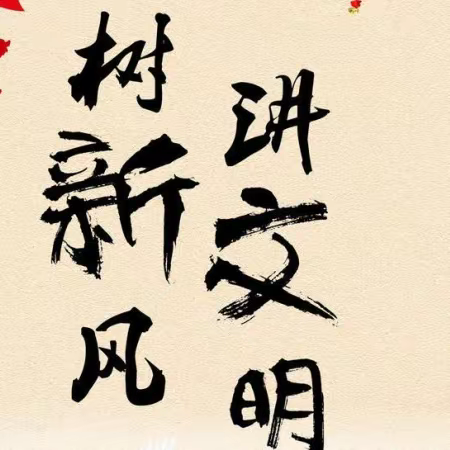 讲文明
树新风